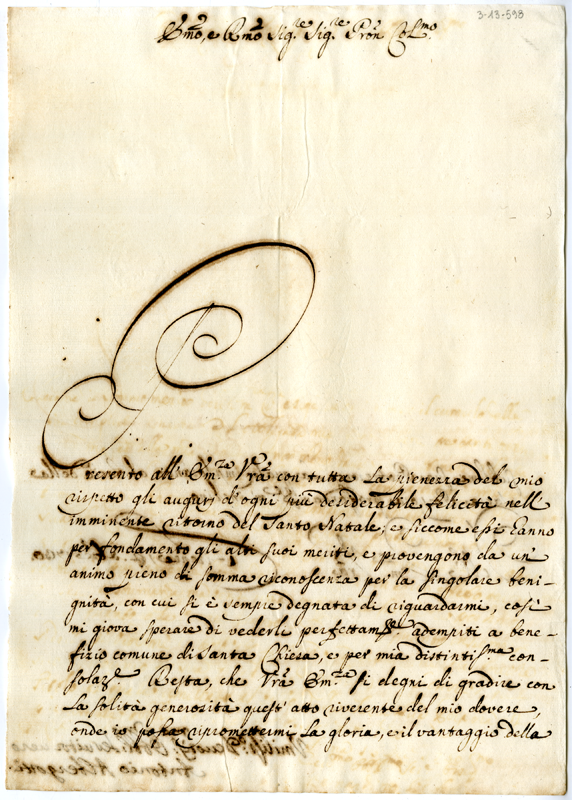 3-13-598
Em͂o, e Rm͂o Sig.re Sig.re Pron͂ Col.mo
Presento all' Em.ze Vr͂a con tutta la pienezza del mio
rispetto gli augurj d'ogni più desiderabile felicità nell'
imminente ritorno del Santo Natale; e siccome essi hanno
per fondamento gli alti suoi meriti, e provengono da un'
animo pieno di somma riconoscenza per la singolare beni-
gnità, con cui si è sempre degnata di riguardarmi, così
mi giova sperare di vederli perfettam.te adempiti a bene-
fizio comune di Santa Chiesa, e per mia distintiss.ma con-
solaz.e Resta, che Vr͂a Em.ze si degni di gradire con
la solità generosità quest' atto riverente del mio dovere,
onde io possa ripromettermi la gloria, e il vantaggio della